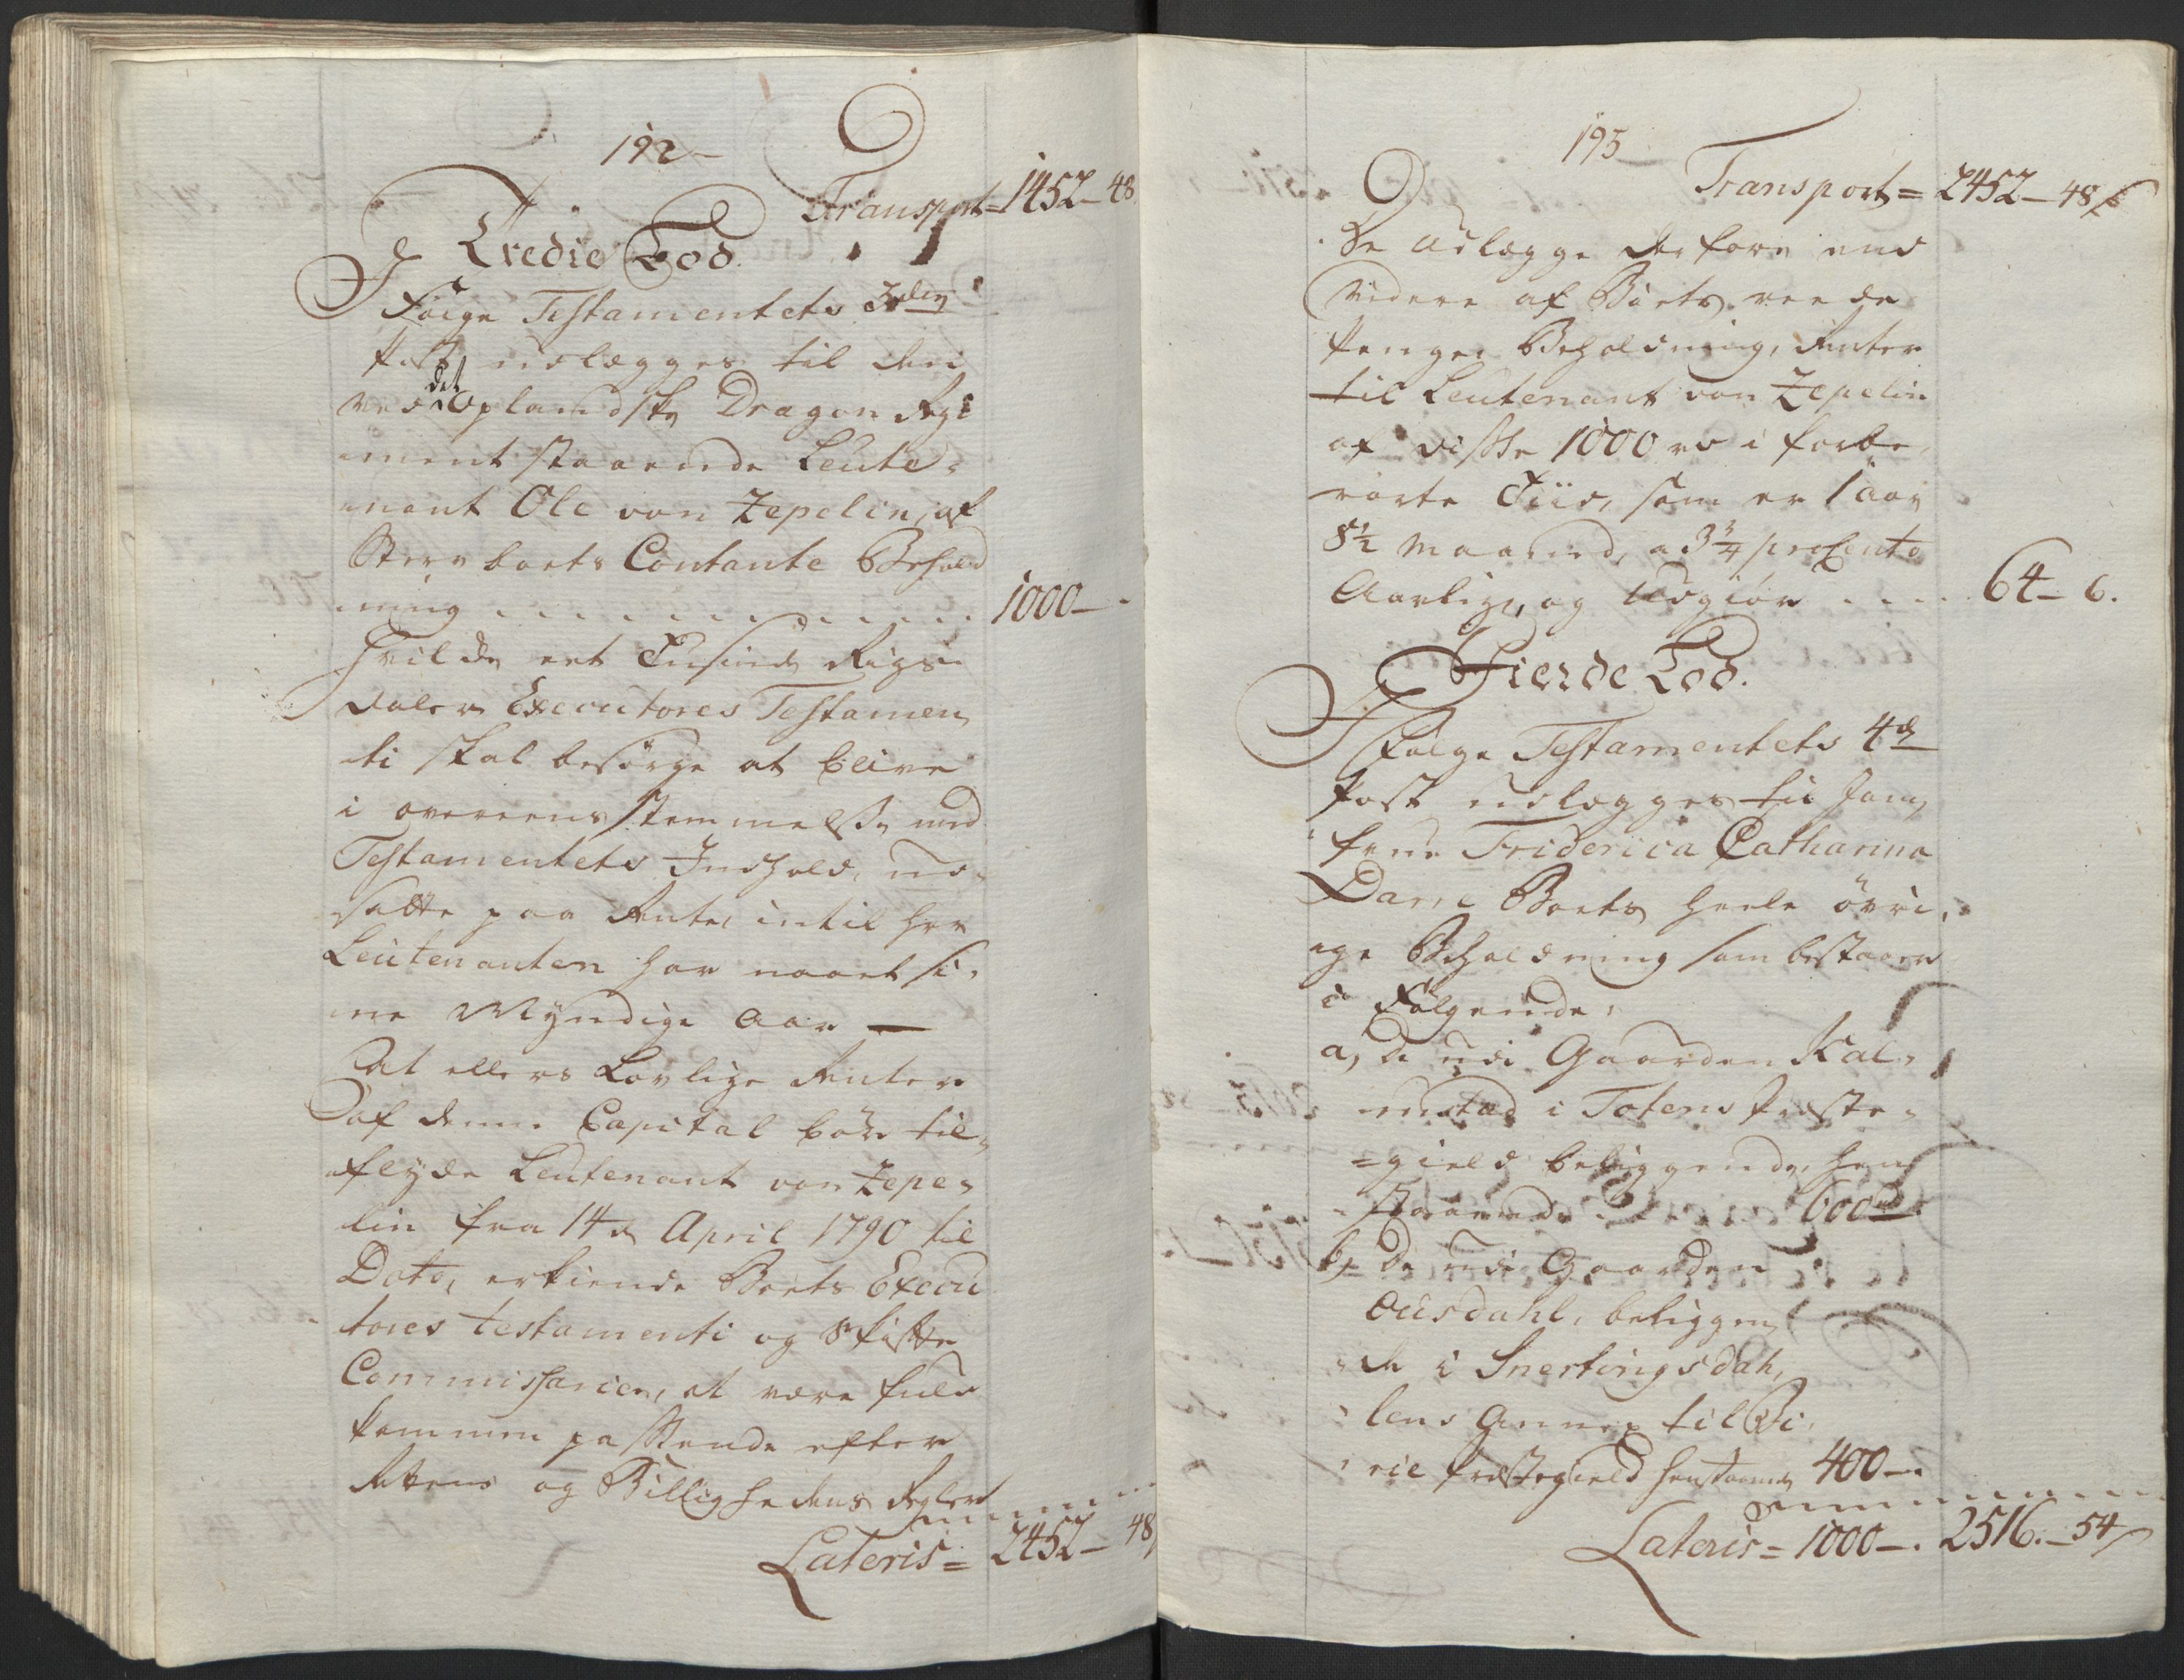 192
Transport = 1452 – 48
Tredie Lod.
I Følge Testamentets 3die
Post udlægges til den
ved det Oplandske Dragon Regi
ment staaende Leute-
nant Ole von Zepelin, af
Sterv boets Contante Behold
ning . . . . . . . . . . . 1000 –
Hvilke eet Tusinde Rigs-
daler Executores Testamen
ti skal besörge at blive
i overeens stemmelse med
Testamentets Indhold, ud-
satte paa Rente, intil Hr
Leutenanten har naaet si-
ne Myndige Aar –
At ellers Lovlige Renter
af denne Capital bör til-
flyde Leutenant von Zepe-
lin fra 14de April 1790 til
Dato, erkiende Boets Execu
tores testamenti og Skifte
Commissarier, at være fuld
kommen passende efter
Rettens og Billighedens Regler
Lateris = 2452 – 48
193
Transport = 2452 – 48 s
De Udlægge derfore end
videre af Boets reede
Penge Beholdning, Renter
til Leutenant von Zepelin
af disse 1000 rd i forbe
rörte Tiid, som er 1 aar
8½ Maaned, a 3¾ pro Cento
Aarlig, og udgiör . . . . 64 – 6.
Fierde Lod.
I Følge Testamentets 4de
Post udlægges til Jom
frue Friderica Catharina
Darre Boets heele övri-
ge Beholdning som bestaaer
i Følgende:
a, De udi Gaarden Kal-
mstad i Totens Præste-
= gield beliggende, hen
staaende . . . . 600 rd
b, De udi Gaarden
Ousdahl, beliggen
de i Snertingsdah,
lens Annex til Bi
rie Præstegield henstaaende 400 –.
Lateris = 1000 –. 2516. – 54 s